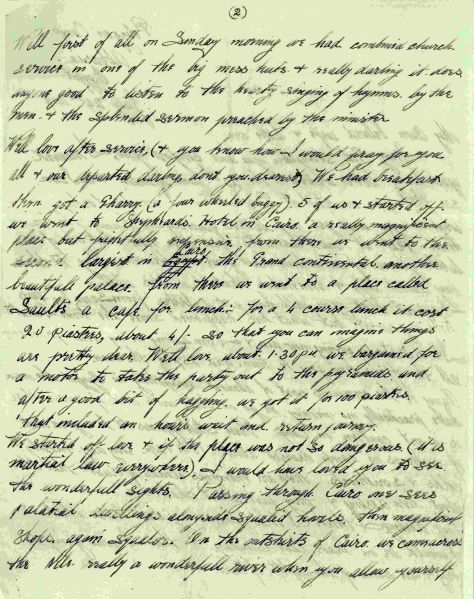 (2)
Well first of all on Sunday morning we had combined church
service in one of the big mess huts & really darling it does
anyone good to listen to the hearty singing of hymns by the
men & the splended sermon preached by the minister
Well love after service, (& you know how I would pray for you
all & our departed darling dont you dearest) We had breakfast
then got a Gharry (a four wheeled buggy). 5 of us & started off
we went to Shepheards Hotel in Cairo. a really magnificent
place but frightfully expensive, from there we went to the
second largest in Cairo the Grand Continental another
beautifull palace. From there we went to a place called
Saults a cafe for lunch:- for a 4 course lunch it cost
20 Piastres, about 4/- so that you can imagine things
are pretty dear. Well love about 1.30 pm we bargained for
a motor to take the party out to the pyramids and
after a good bit of haggling we got it for 100 piastres
that included an hours wait and return journey.
We started off love & if the place was not so dangerous. (it is
martial law everywhere), I would have loved you to see
the wonderfull sights. Passing through Cairo one sees
palatial dwellings alongside squalid hovels, then magnificent
shops, again squalor. On the outskirts of Cairo we came across
the Nile really a wonderfull river when you allow yourself